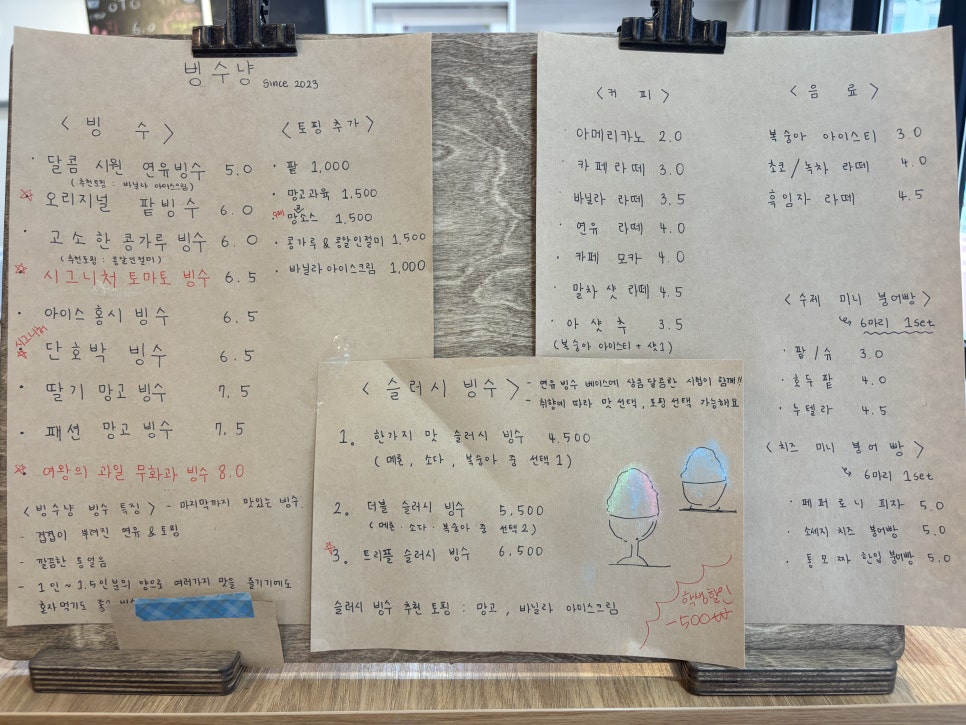 빙수냥 Since 2023
< 빙 수 >
· 달콤 시원 연유빙수 5.0
(추천토핑 : 바닐라 아이스크림)
오리지널 팥빙수 6.0
· 고소한 콩가루 빙수 6.0
(추천토핑 : 콩알인절미)
시그니처 토마토 빙수 6.5
· 아이스 홍시 빙수 6.5
시그니처
단호박 빙수 6.5
· 딸기 망고 빙수 7.5
· 패션 망고 빙수 7.5
여왕의 과일 무화과 빙수 8.0
< 빙수냥 빙수 특징 > - 마지막까지 맛있는 빙수
- 겹겹이 뿌려진 연유 & 토핑
- 깔끔한 통얼음
- 1인 ~ 1.5인분의 양으로 여러가지 맛을 즐기기에도
혼자먹기도
< 토핑 추가 >
· 팥 1,000
· 망고과육 1,500
망고소스 1,500
· 콩가루 & 콩알인절미 1,500
· 바닐라 아이스크림 1,000
< 슬러시 빙수 > - 연유 빙수 베이스에 상큼달콤한 시럽이 함께!!
- 취향에 따라 맛 선택, 토핑 선택 가능해요
1. 한가지 맛 슬러시 빙수 4.500
(메론, 소다, 복숭아 중 선택 1)
2. 더블 슬러시 빙수 5,500
(메론 · 소다 · 복숭아 중 선택2)
3. 트리플 슬러시 빙수 6,500
슬러시 빙수 추천 토핑 : 망고, 바닐라 아이스크림
학생할인
-500₩
< 커 피 >
아메리카노 2.0
· 카페라떼 3.0
바닐라 라떼 3.5
· 연유 라떼 4.0
· 카페 모카 4.0
· 말차 샷 라떼 4.5
· 아 샷 추 3.5
(복숭아 아이스티 + 샷1)
< 음 료 >
복숭아 아이스티 3.0
초코/녹차 라떼 4.0
흑임자 라떼 4.5
< 수제 미니 붕어빵 >
↳ 6마리 1set
· 팥/슈 3.0
· 호두 팥 4.0
· 누텔라 4.5
< 치즈 미니 붕어빵 >
↳ 6마리 1set
· 페퍼로니 피자 5.0
· 소세지 치즈 붕어빵 5.0
· 통모짜 한입 붕어빵 5.0